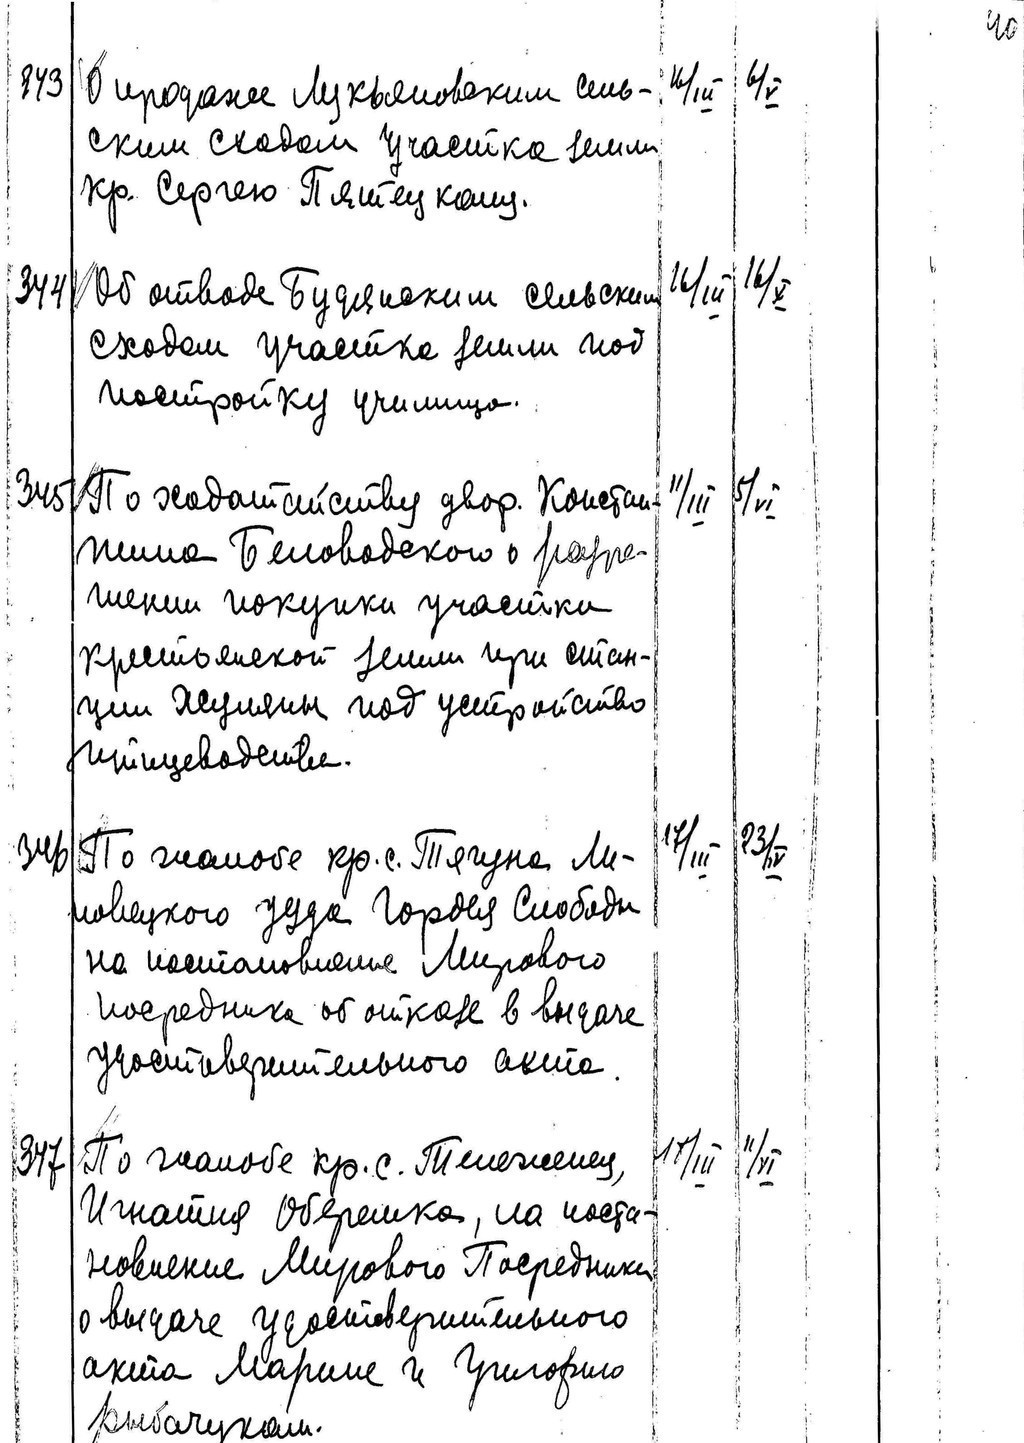 40
343 О продаже Лукьяновским сель- 16/III 6/V
ским сходом участка земли
кр. Сергею Пятецкому.
344 Об отводе Будянским сельским 16/III 16/X
сходом участка земли под
постройку училища.
345 По ходатайству двор. Констан- 11/III 5/VI
тина Беловодского о разре-
шении покупки участка
крестьянской земли при стан-
ции Жуляны под устройство
птицеводства.
346 По жалобе кр. с. Тягуна Ли- 17/III 23/IV
повецкого уезда Гордея Слободы
на постановление Мирового
посредника об отказе в выдаче
удостоверительного акта.
347 По жалобе кр. с. Тележенец, /III 11/VI
Игнатия Оберемка, на поста-
новление Мирового Посредника
о выдаче удостоверительного
акта Марине и
Рыбачукам.